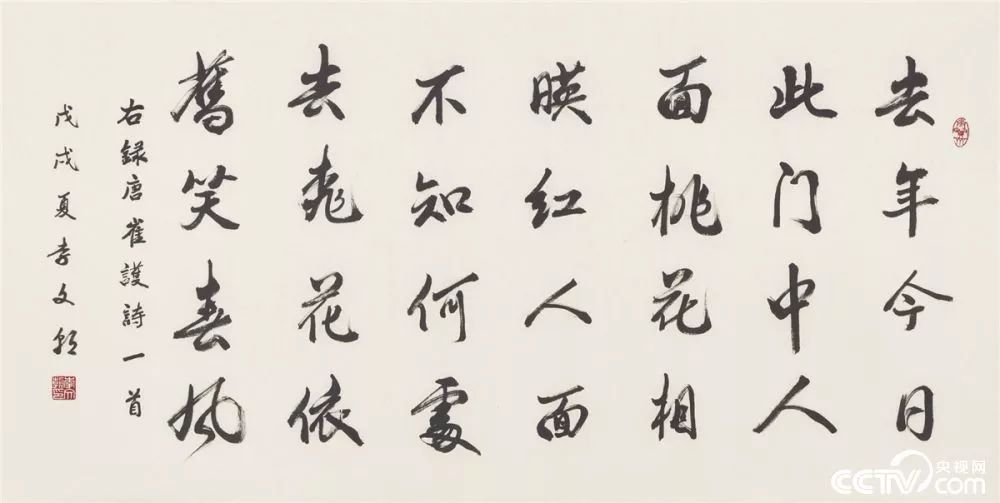 去年今日
此门中人
面桃花相
暎红人面
不知何處
去桃花依
舊笑春风
右録唐崔護詩一首
戊戌夏李文朝
央视网
CCTV.com